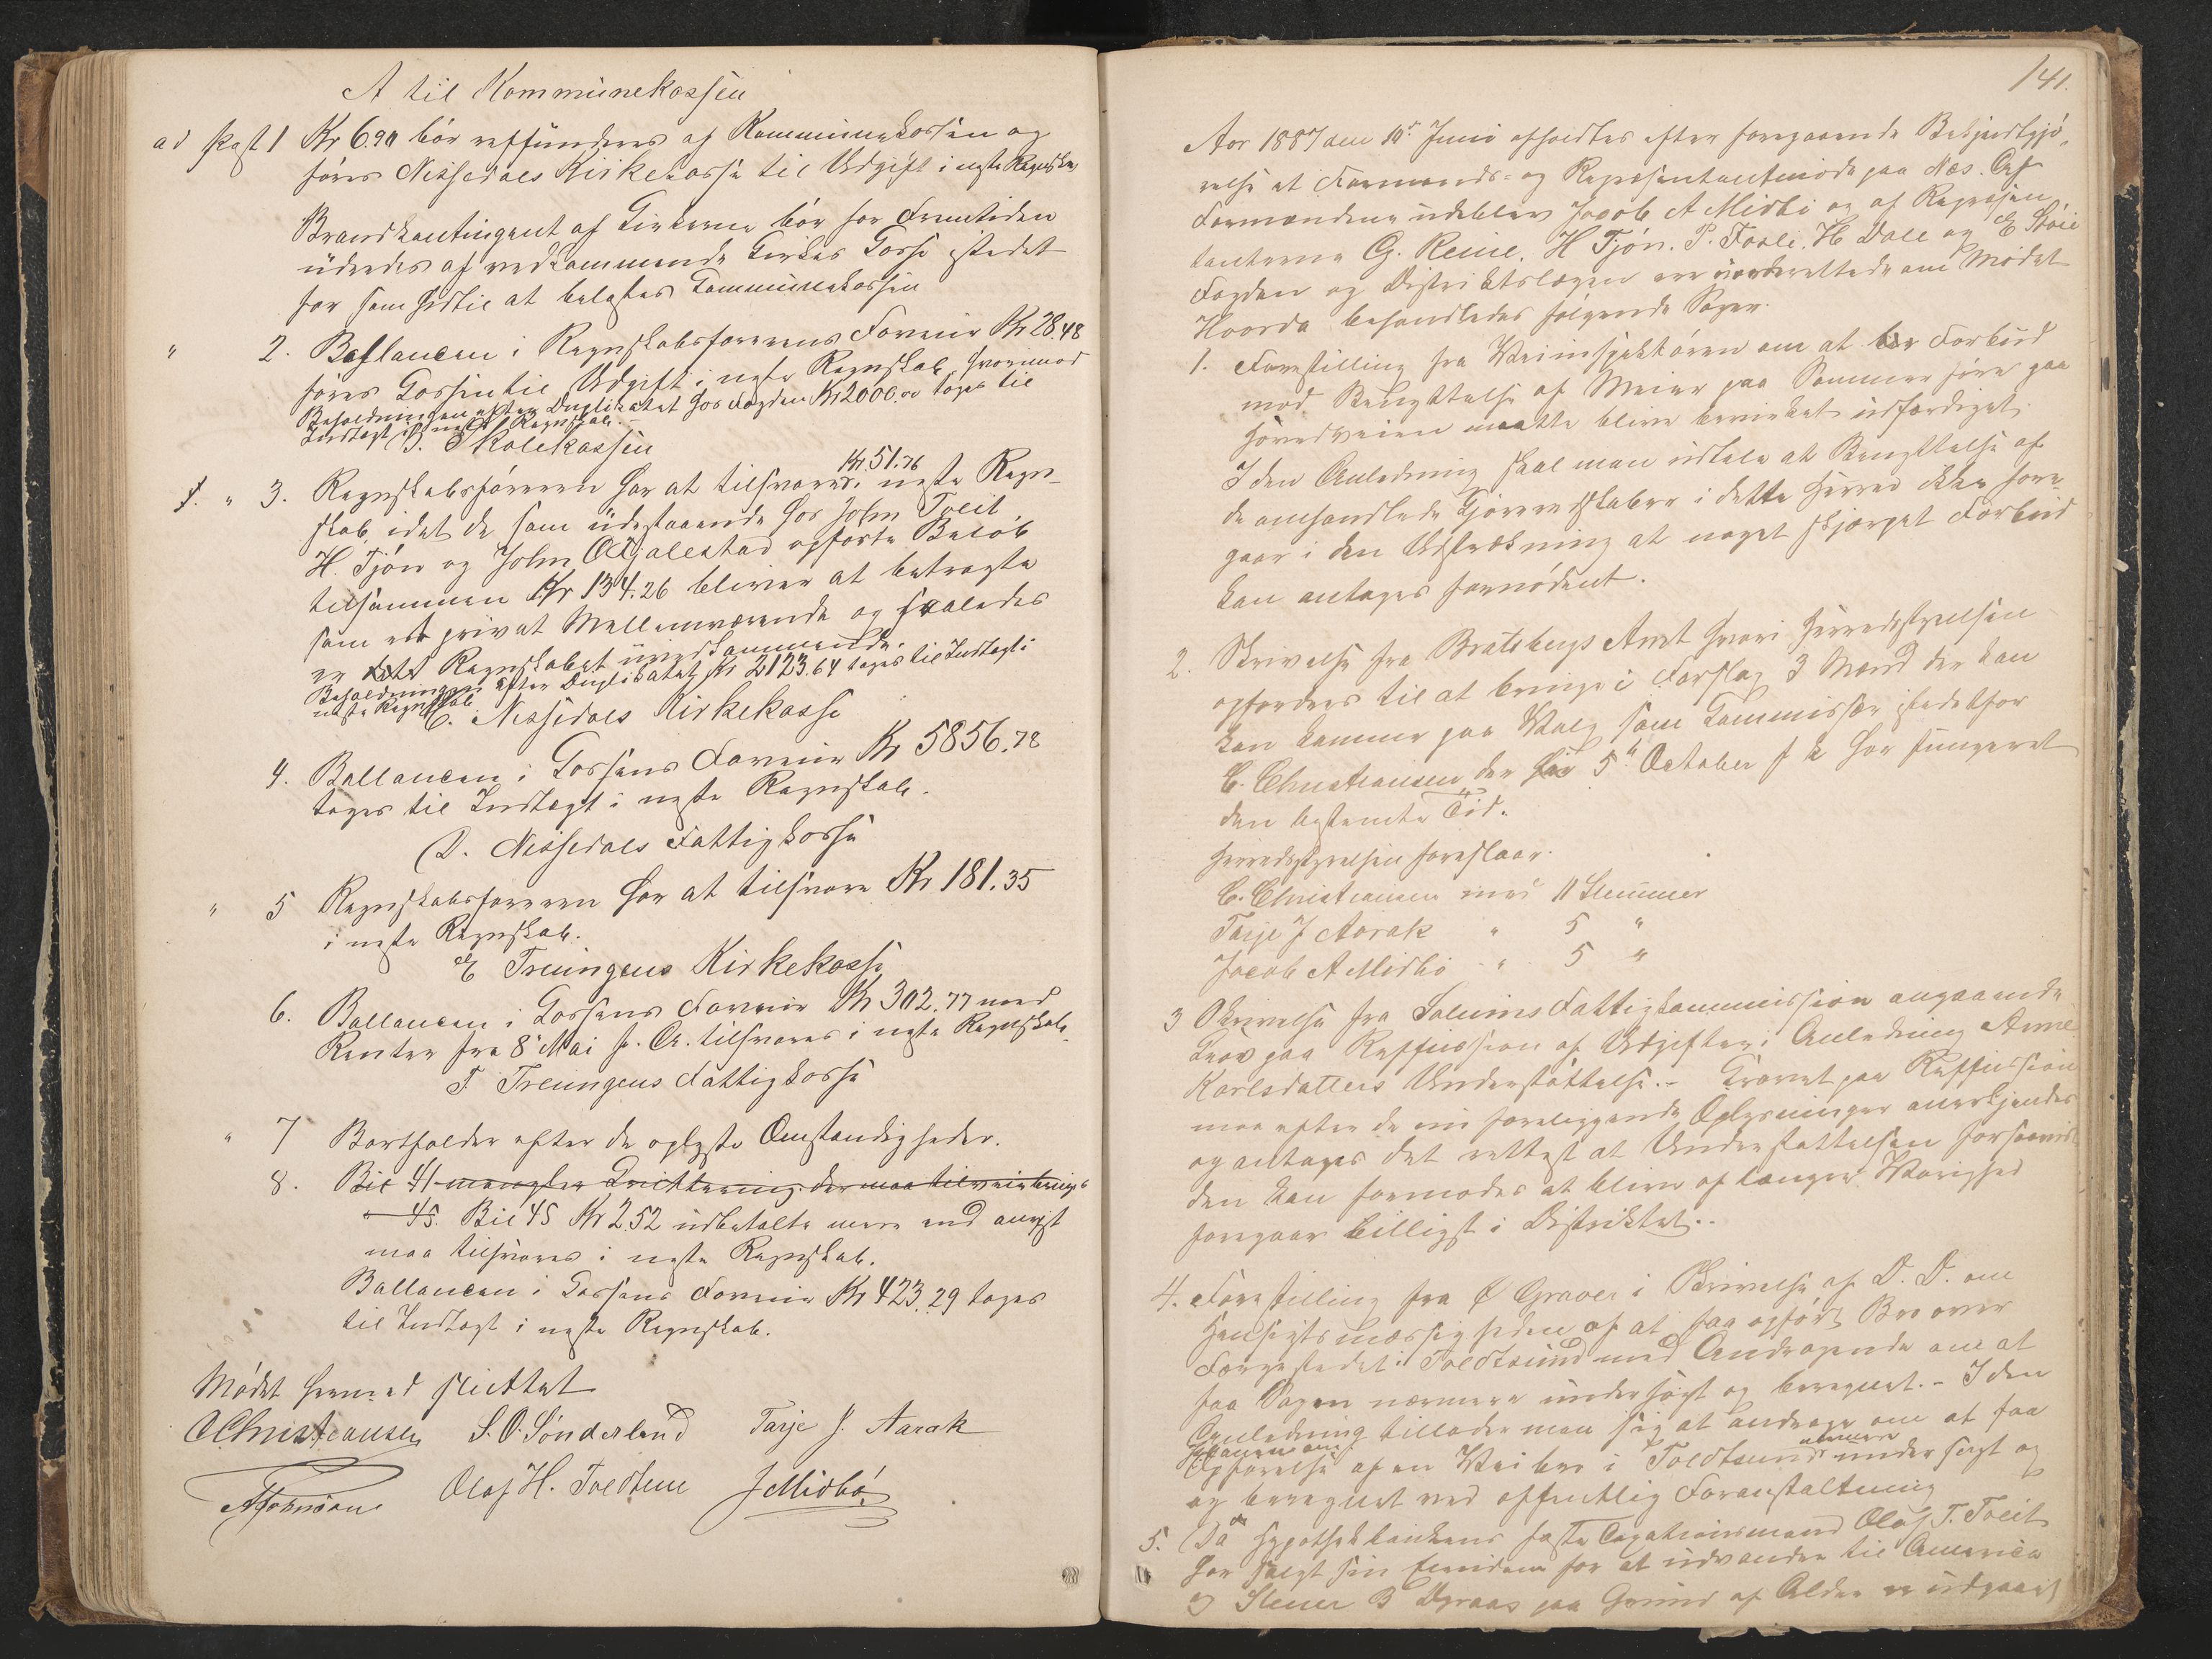 A til Kommunekassen
ad Post 1 Kr 6.90 bør reffunderes af Kommunekassen og
føres Nissedals Kirkekasse til Udgift i neste Regnskab
Brandkontingent af Kirkerne bør for Fremtiden
udredes af vedkommende Kirkes Kasse istedet
for som hidtil at belastes Kommunekassen
" 2. Ballancen i Regnskabsførerens Faveur Kr 28.48
føres Kassen til Udgift i neste Regnskab, hvorimod
Beholdningen efter Duplikatet hos Fogden Kr 2000.00 tages til
Indtægt i neste Regnskab.
B. Skolekassen
" 3. Regnskabsføreren har at tilsvare Kr 51.76 i neste Regn-
skab, idet de som udestaaende hos John Tveit,
H. Tjøn og John O Fjalestad opførte Beløb
tilsammen Kr 134.26 bliver at betragte
som et privat Mellemværende og saaledes
er dette Regnskabet uvedkommende.
Beholdningen efter Duplikatet Kr 2123.64 tages til Indtægt i
neste Regnskab
C. Nissedals Kirkekasse
4. Ballancen i Kassens Faveur Kr 5856.78
tages til Indtægt i neste Regnskab.
D. Nissedals Fattigkasse
" 5 Regnskabsføreren har at tilsvare Kr 181.35
i neste Regnskab.
E Treungens Kirkekasse
6. Ballancen i Kassens Faveur Kr 302.77 med
Renter fra 8 Mai f. A. tilsvares i neste Regnskab.
F Treungens Fattigkasse
" 7 Bortfalder efter de oplyste Omstændigheder.
8. Bil 41 mangler Qvittering der maa tilveiebringes
" 45. Bil 45 Kr 2.52 udbetalte mere end anvist
maa tilsvares i neste Regnskab.
Ballancen i Kassens Faveur Kr 423.29 tages
til Indtægt i neste Regnskab.
Mødet hermed sluttet
C Christiansen S. O. Sønderland Tarje J. Aarak
A Johnsen Olaf H. Tvedtene J Midbø
141.
Aar 1887 den 10de Juni afholdtes efter foregaaende Bekjendtgjø-
relse et Formands- og Repræsentantmøde paa Næs. Af
Formændene udeblev Jacob A Midbø og af Repræsen-
tanterne G. Reine, H Tjøn. P. Fosli. H Dale og E Støie
Fogden og Distriktslægen var underrettede om Mødet
Hvorda behandledes følgende Sager.
1. Forestilling fra Veiinspektøren om at Forbud
mod Benyttelse af Meier paa Sommerføre paa
Hovedveien maatte blive bevirket udfærdiget.
I den Anledning skal man udtale at Benyttelse af
de omhandlede Kjøreredskaber i dette Herred ikke fore-
gaar i den Udstrækning at noget skjærpet Forbud
kan antages fornødent.
2. Skrivelse fra Bratsbergs Amt hvori Herredsstyrelsen
opfordres til at bringe i Forslag 3 Mænd der kan
kan komme paa Valg som Kommissær istedetfor
C. Christiansen der 5te October f k har fungeret
den bestemte Tid.
Herredsstyrelsen foreslaar.
C. Christiansen med 11 Stemmer
Tarje J Aarak " 5 "
Jacob A Midbø " 5 "
3 Skrivelse fra Solums Fattigkommission angaaende
Krav paa Reffusion af Udgifter i Anledning Anne
Karlsdatters Understøttelse. – Kravet paa Reffusion
maa efter de nu foreliggende Oplysninger anerkjendes
og antages det rettest at Understøttelsen forsaavidt
den kan formodes at blive af længere Varighed
foregaar billigst i Distriktet.
4. Forestilling fra O Graver i Skrivelse af D. D. om
Hensigtsmæssigheden af at faa opført Bro over
Færgestedet i Tvedtsund med Andragende om at
faa Sagen nærmere undersøgt og beregnet. – I den
Anledning tillader man sig at andrage om at faa
Opførelse af en Veibro i Tvedtsund nærmere undersøgt og
og beregnet ved offentlig Foranstaltning
5. Da Hypothekbankens faste Taxationsmænd Olaf T. Tveit
har solgt sin Eiendom for at udvandre til America
og Stener B Ugraas paa Grund af Alder er udgaaet